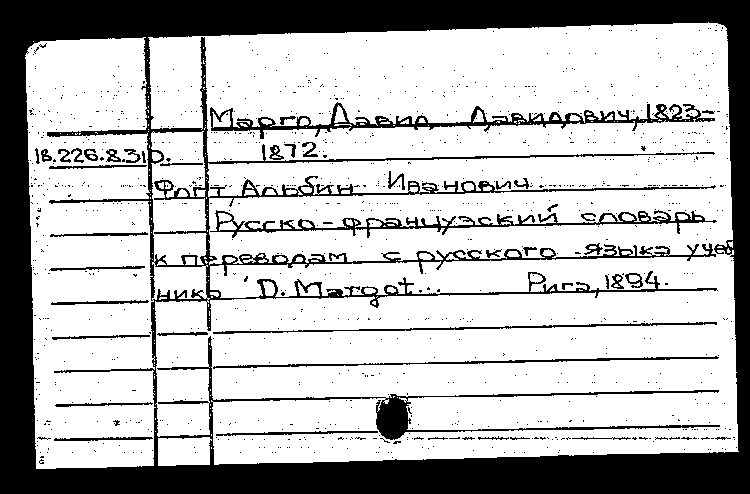 Марго, Давид Давидович, 1823-
18.226.8.31D. 1872.
Фогт, Альбин Иванович.
Русско-французский словарь
к переводам с русского языка учеб
ника D. Margot... Рига, 1894.